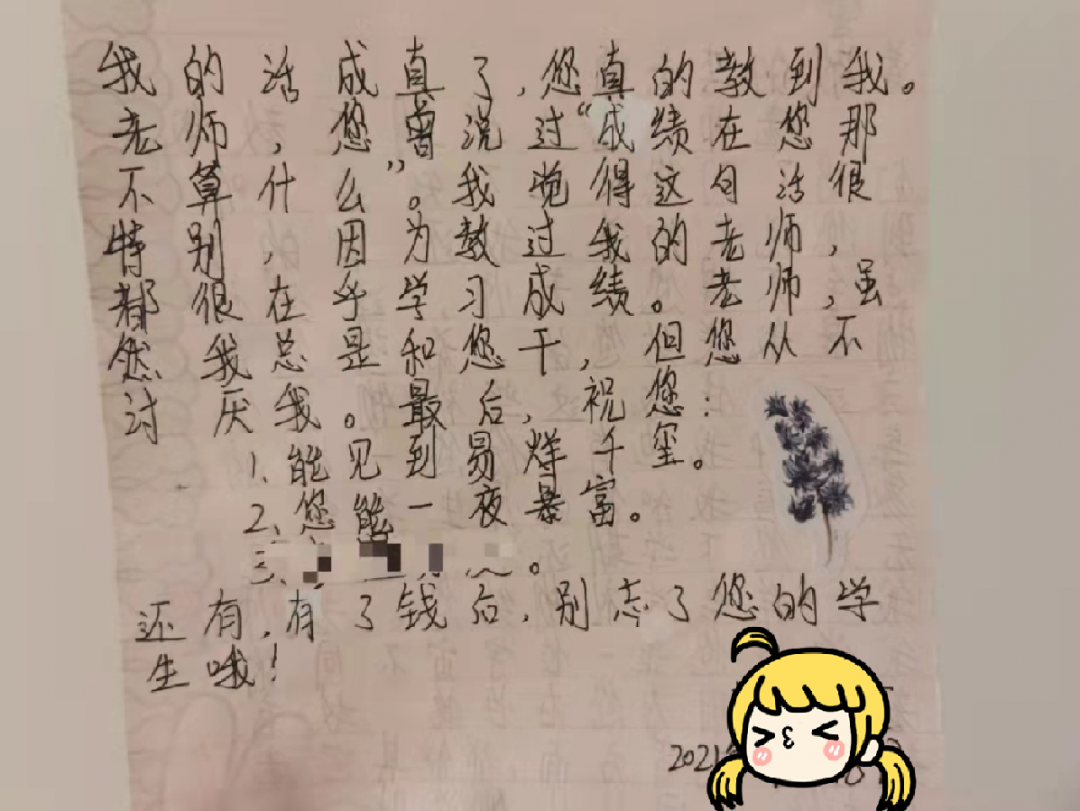 我的话成真了,您真的教到我。
老师,您曾说过“成绩在您那
不算什么”。我觉得这句话很
特别,因为教过我的老师,
都很在乎学习成绩。老师,虽
然我总是和您干,但您从不
讨厌我。最后,祝您:
1、能见到易烊千玺。
2、您能一夜暴富。
三、
还有,有了钱后,别忘了您的学
生哦!
2021